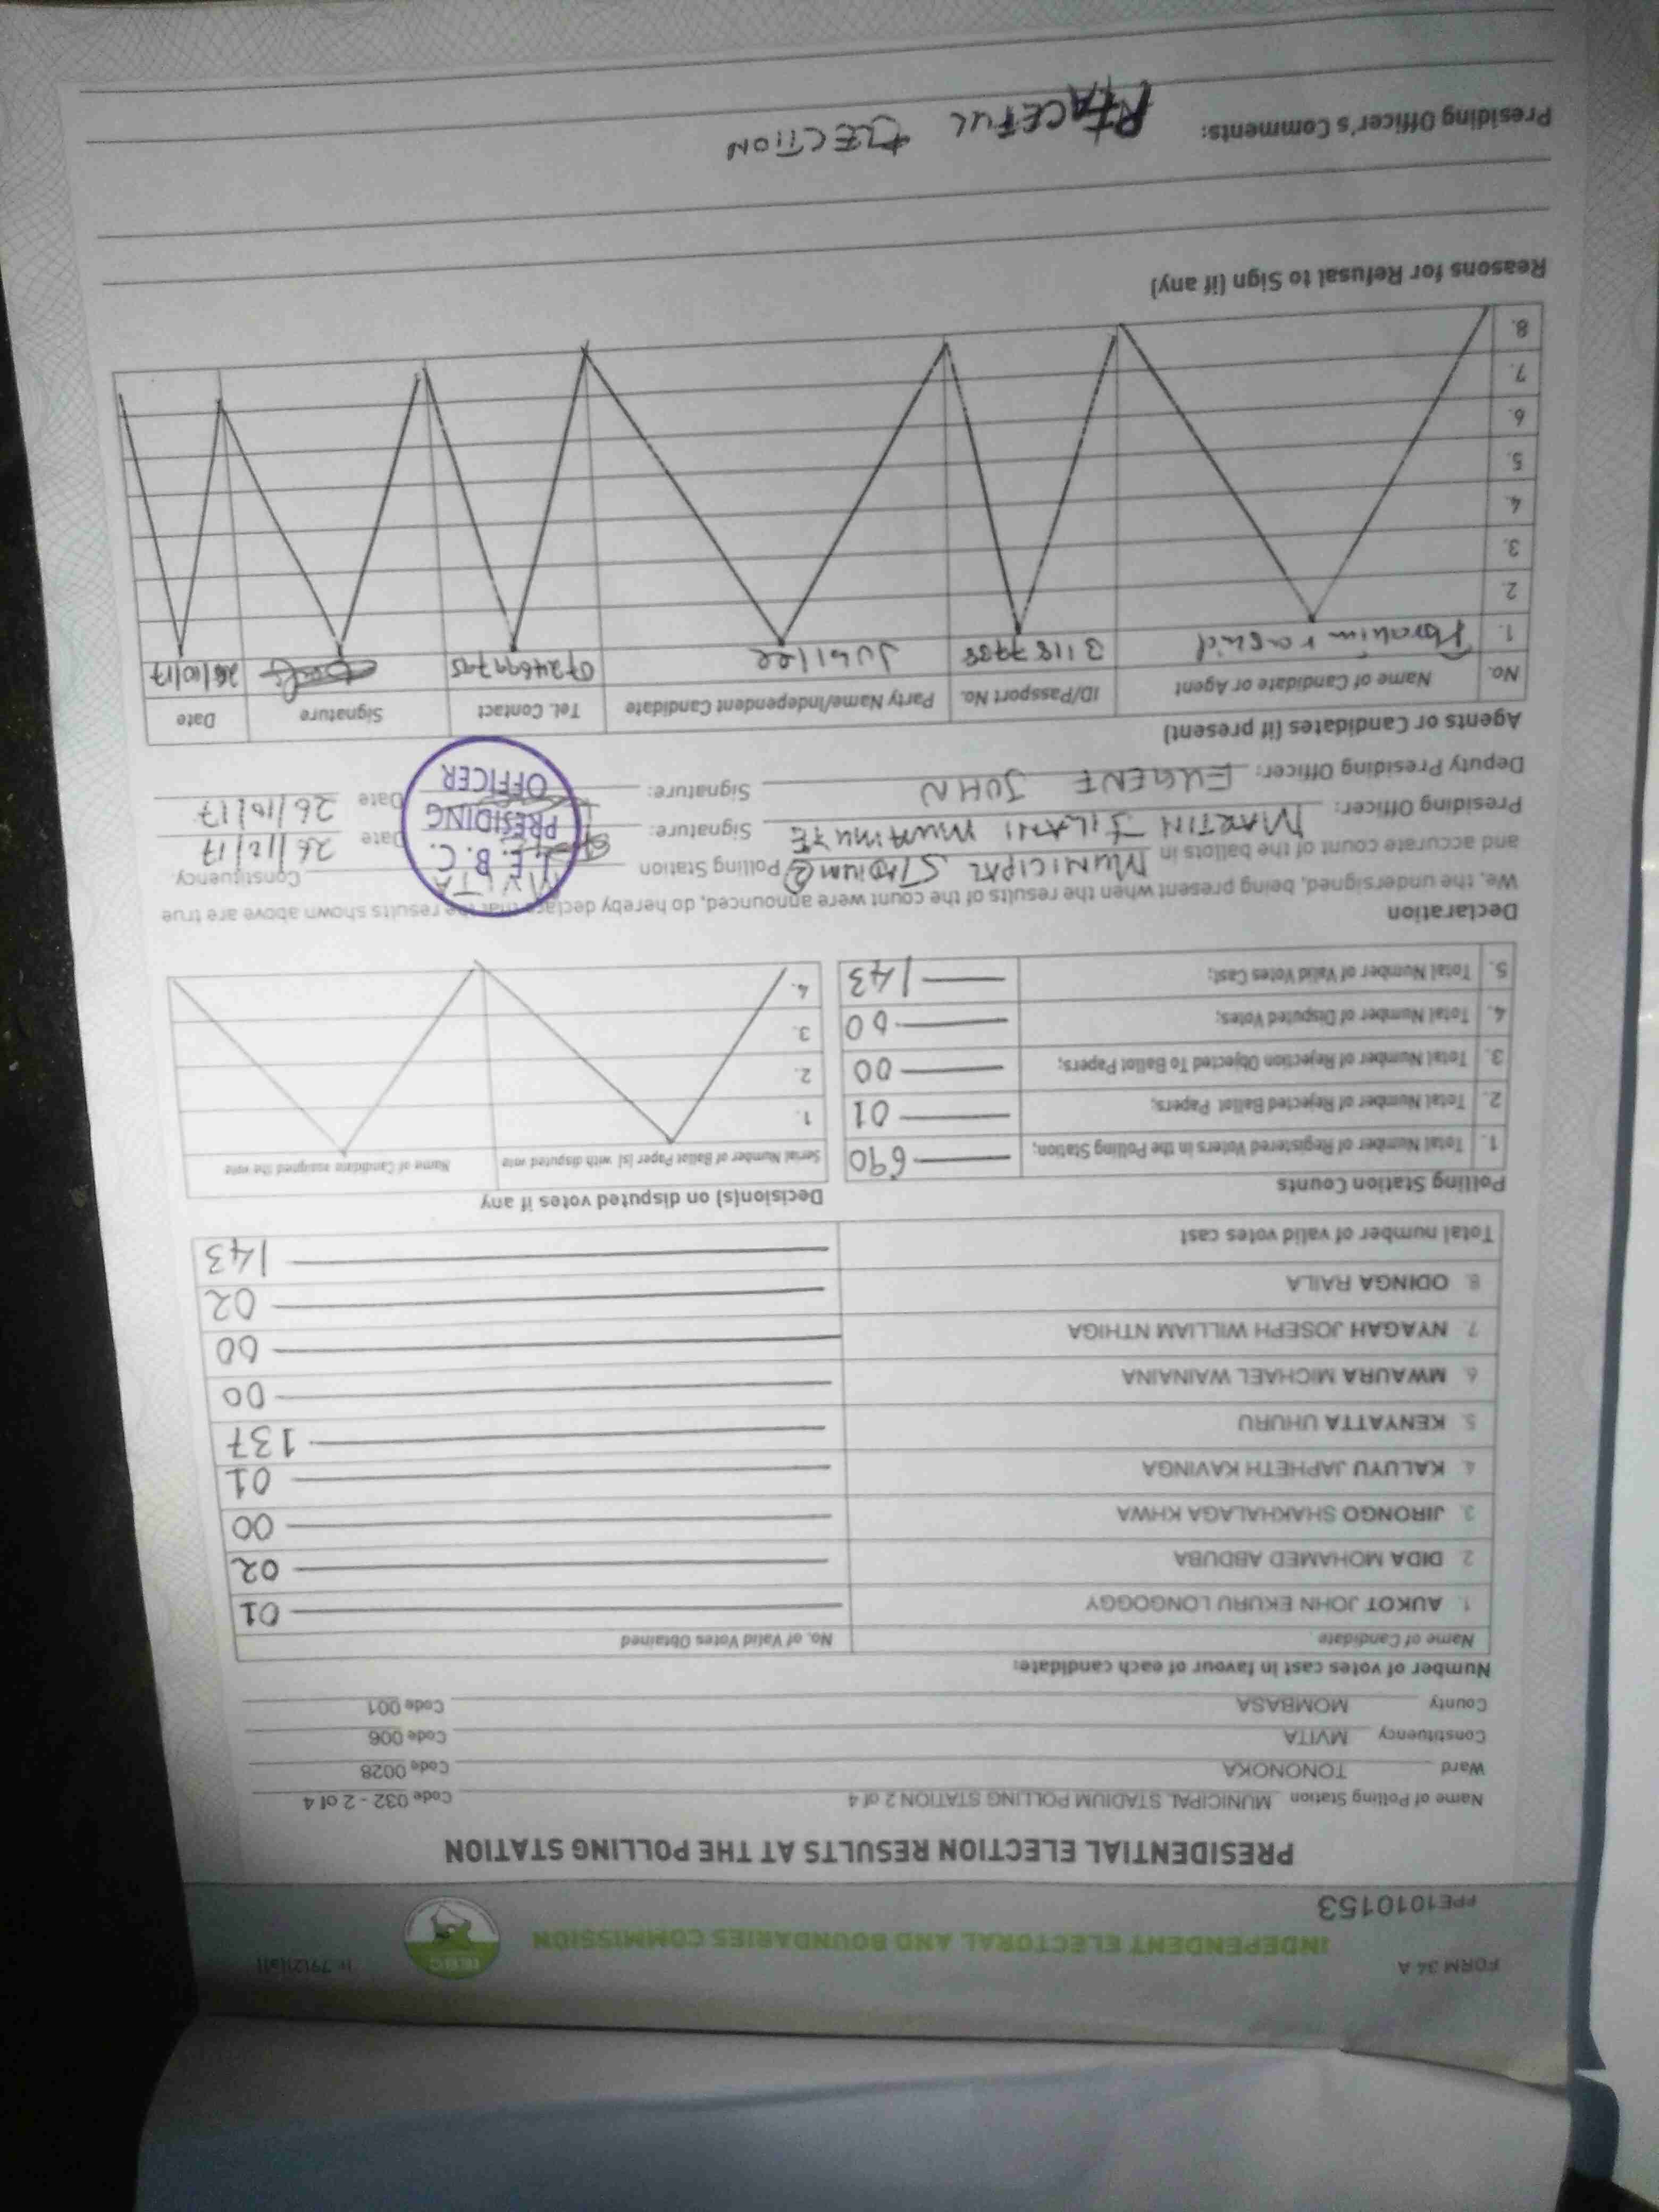 FORM 34 A
(r. 79(2)(a))
INDEPENDENT ELECTORAL AND BOUNDARIES COMMISSION
IEBC
PPE1010153
PRESIDENTIAL ELECTION RESULTS AT THE POLLING STATION
Name of Polling Station MUNICIPAL STADIUM POLLING STATION 2 of 4 Code 032 - 2 of 4
Ward TONONOKA Code 0028
Constituency MVITA Code 006
County MOMBASA Code 001
Number of votes cast in favour of each candidate:
Name of Candidate No. of Valid Votes Obtained
1. AUKOT JOHN EKURU LONGOGGY 01
2. DIDA MOHAMED ABDUBA 02
3. JIRONGO SHAKHALAGA KHWA 00
4. KALUYU JAPHETH KAVINGA 01
5. KENYATTA UHURU 137
6. MWAURA MICHAEL WAINAINA 00
7. NYAGAH JOSEPH WILLIAM NTHIGA 00
8. ODINGA RAILA 02
Total number of valid votes cast 143
Polling Station Counts
1. Total Number of Registered Voters in the Polling Station; 690
2. Total Number of Rejected Ballot Papers; 01
3. Total Number of Rejection Objected To Ballot Papers; 00
4. Total Number of Disputed Votes; 00
5. Total Number of Valid Votes Cast; 143
Decision(s) on disputed votes if any
Serial Number of Ballot Paper (s) with disputed vote Name of Candidate assigned the vote
1.
2.
3.
4.
Declaration
We, the undersigned, being present when the results of the count were announced, do hereby declare that the results shown above are true
and accurate count of the ballots in MUNICIPAL STADIUM 2 Polling Station MVITA Constituency.
Presiding Officer: MARTIN JILANI MWAIMUTE Signature: Date 26/12/17
Deputy Presiding Officer: EUGENE JOHN Signature: Date 26/10/17
I.E.B.C.
PRESIDING
OFFICER
Agents or Candidates (if present)
No. Name of Candidate or Agent ID/Passport No. Party Name/Independent Candidate Tel. Contact Signature Date
1. Ibrahim rashid 31187788 Jubilee 0724699795 26/10/17
2.
3.
4.
5.
6.
7.
8.
Reasons for Refusal to Sign (if any)
Presiding Officer's Comments: PEACEFUL ELECTION